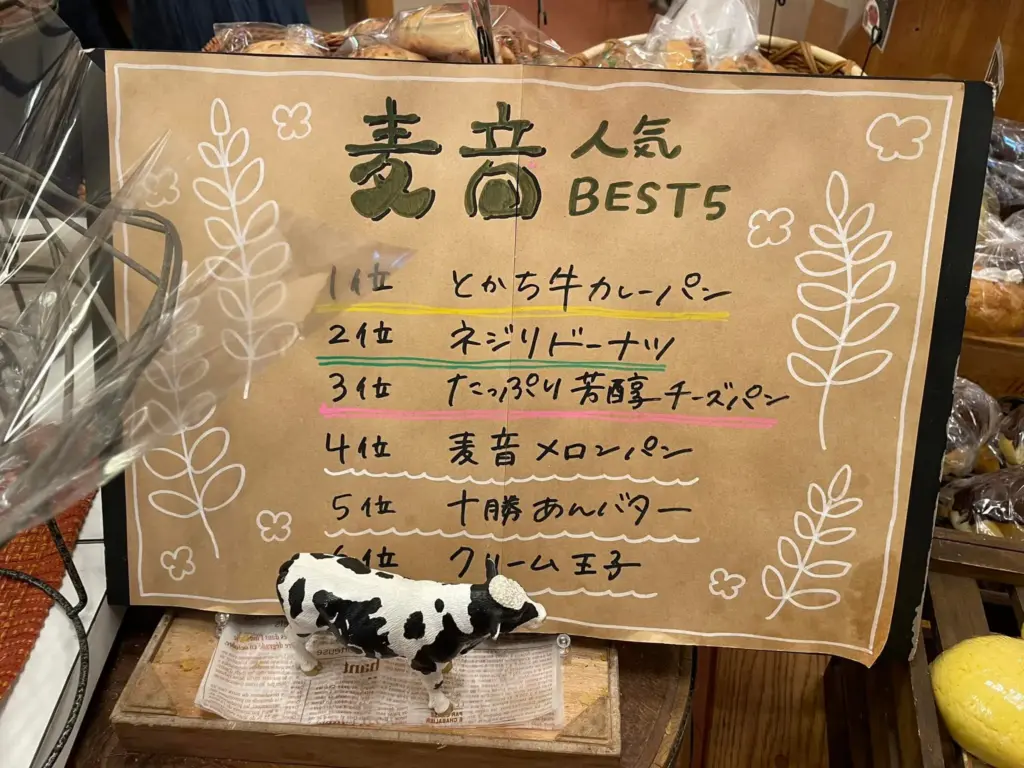 麦音 人気 BEST5
1位 とかち牛カレーパン
2位 ネジリドーナツ
3位 たっぷり芳醇チーズパン
4位 麦音メロンパン
5位 十勝あんバター
位 クリーム王子